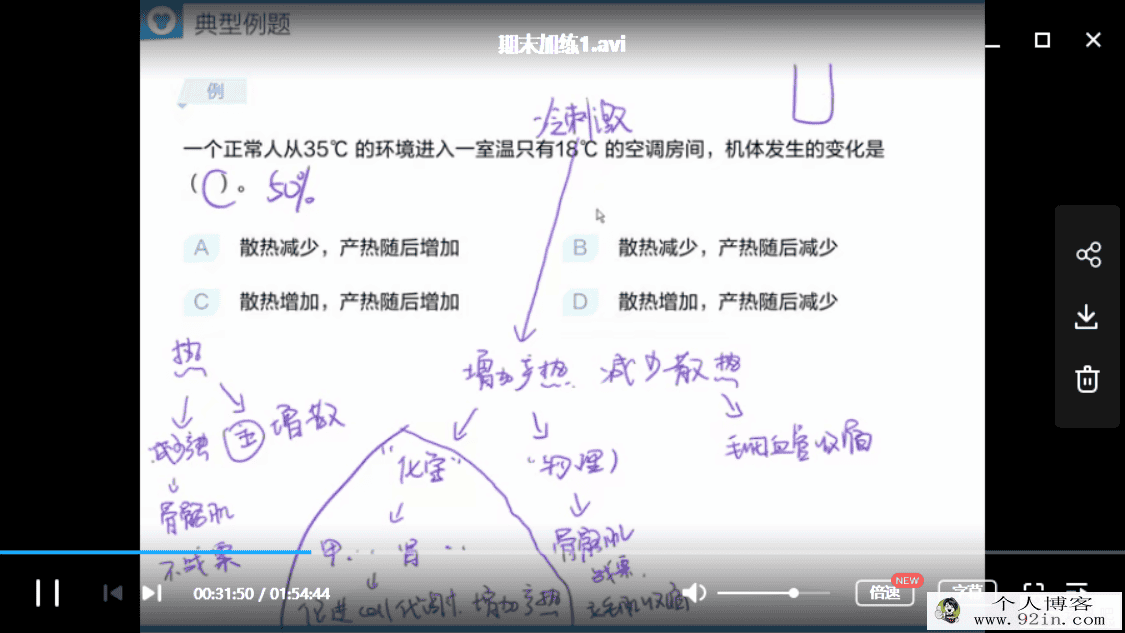 典型例题
期末加练1.avi
例
冷刺激
一个正常人从35℃ 的环境进入一室温只有18℃ 的空调房间，机体发生的变化是
（C）。 50%
A 散热减少，产热随后增加
B 散热减少，产热随后减少
C 散热增加，产热随后增加
D 散热增加，产热随后减少
热
增加产热. 减少散热
主 增散
毛细血管收缩
"化学"
"物理)
骨骼肌
不战栗
甲... 肾 ..
骨骼肌
战栗.
促进cell代谢, 增加产热
立毛肌收缩
00:31:50 / 01:54:44
倍速
NEW
字幕
个人博客
www.92in.com